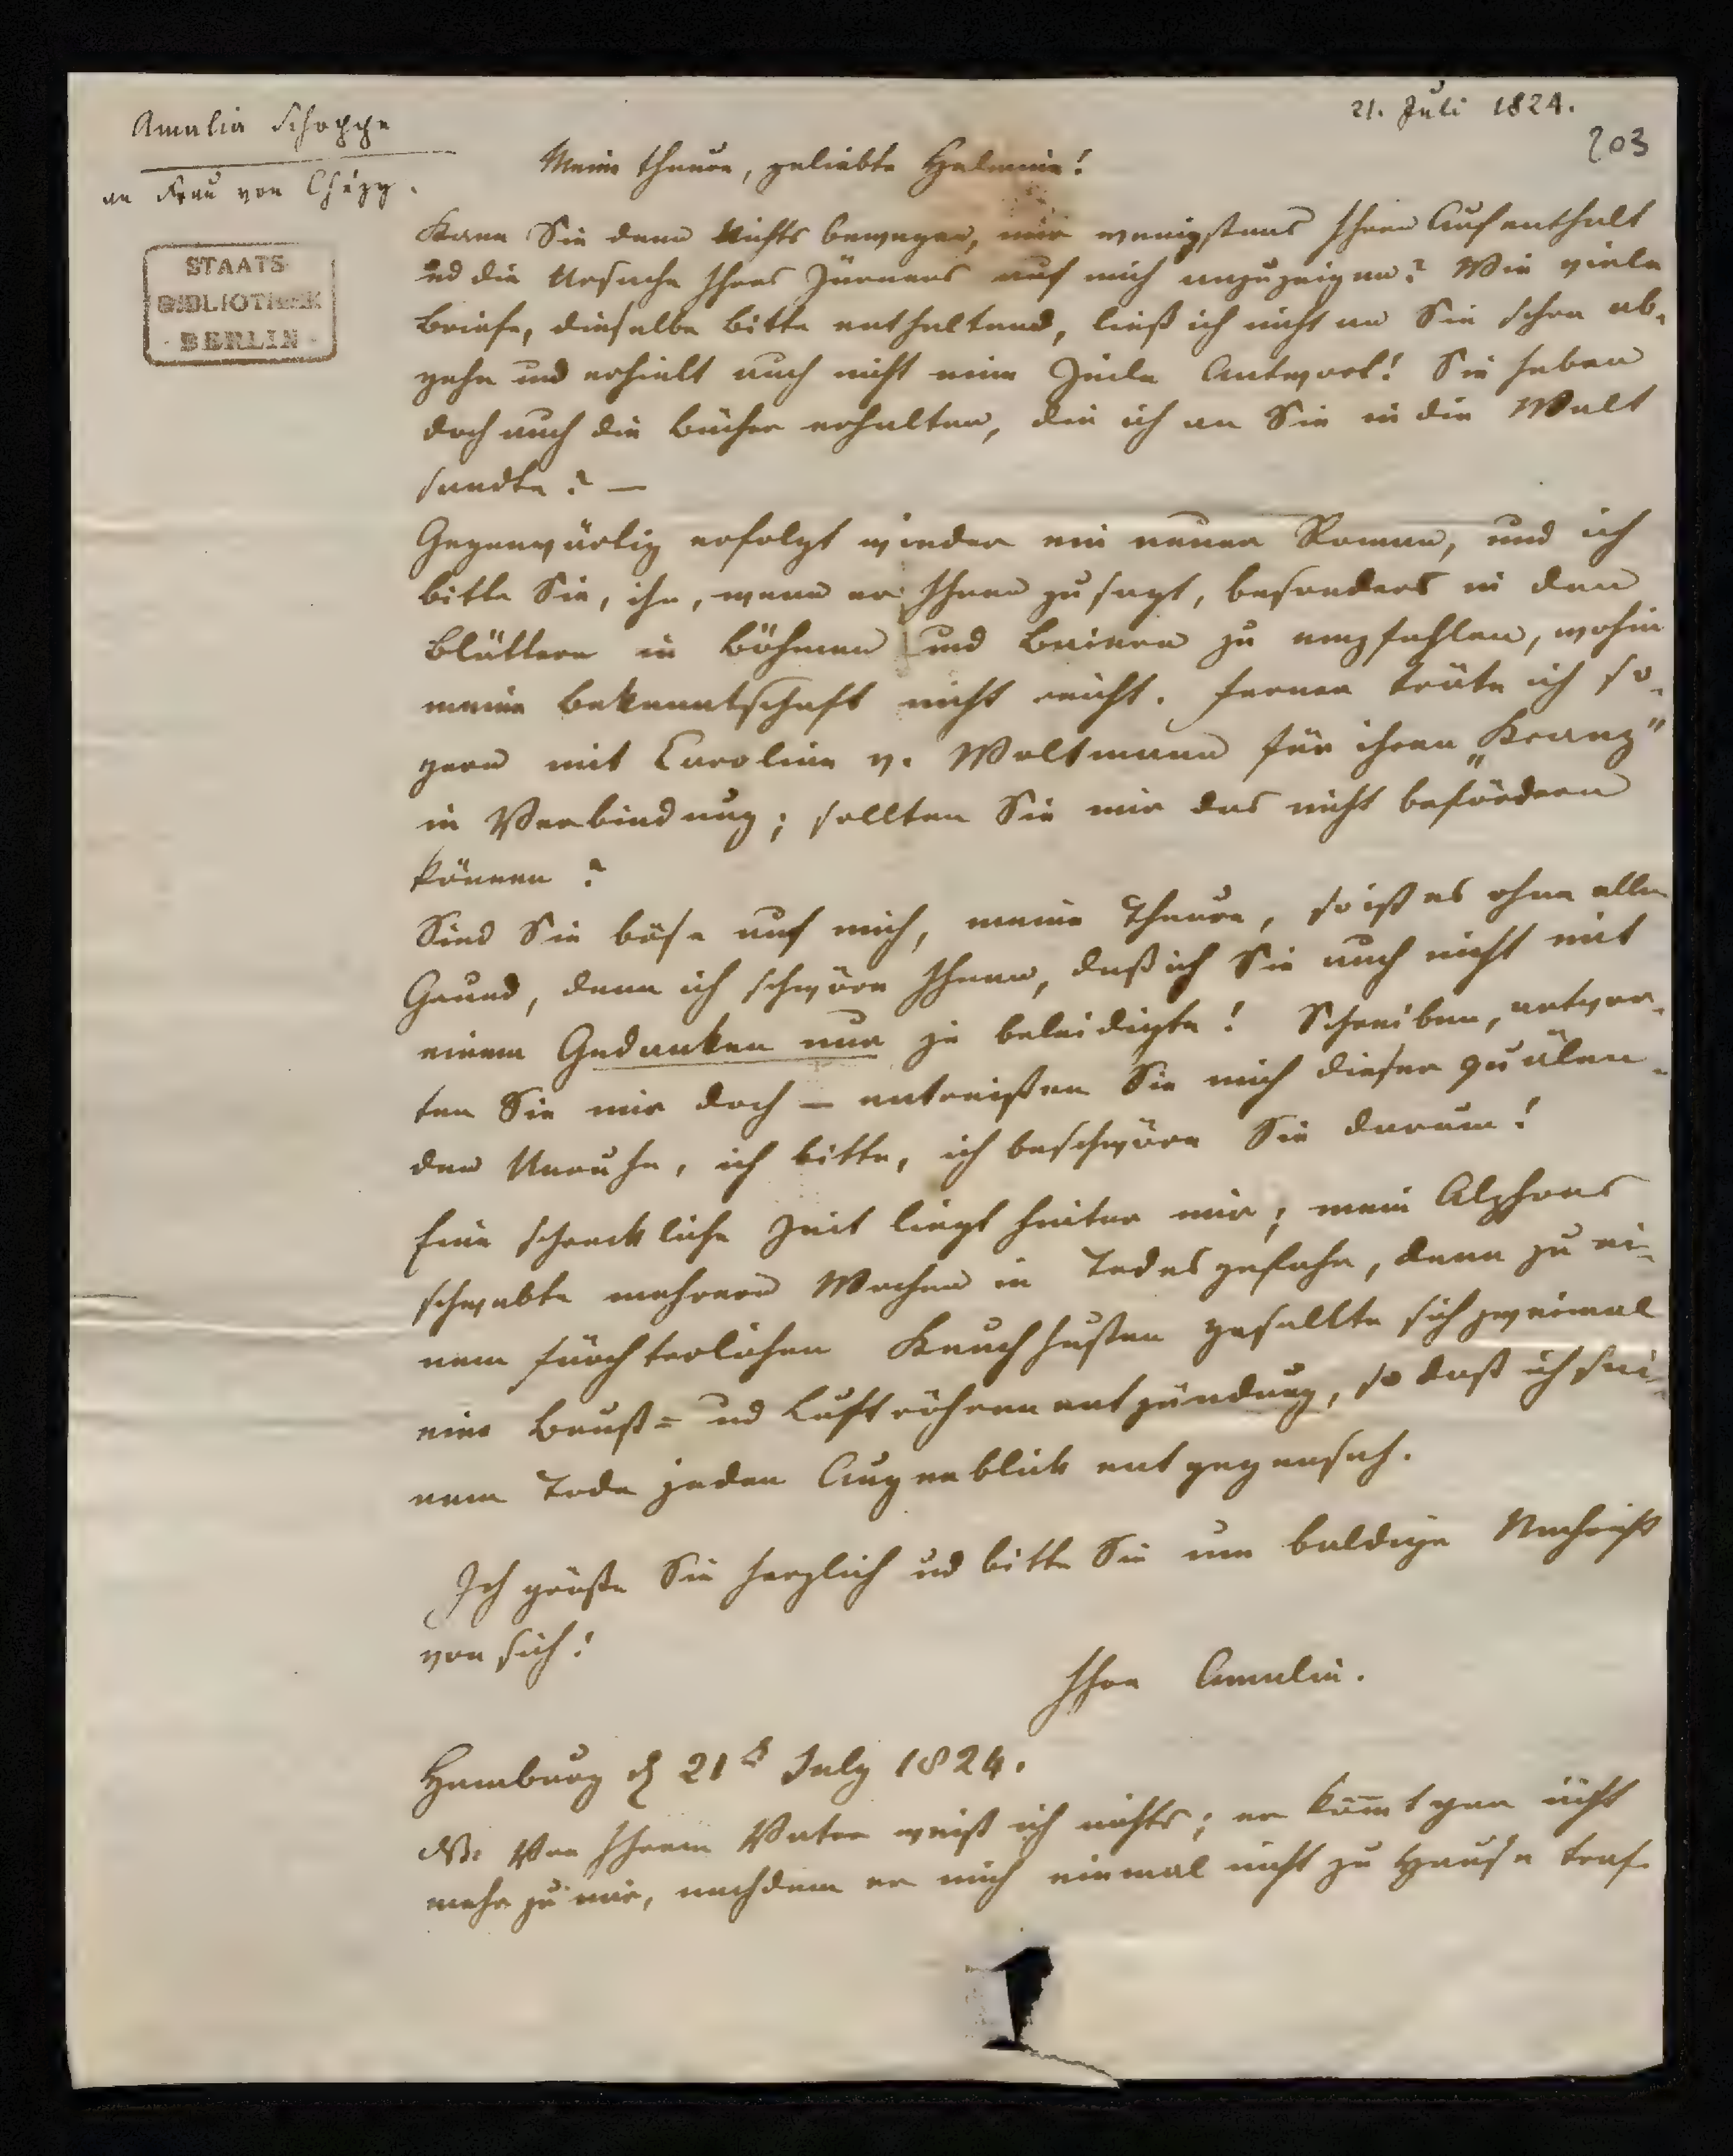 21. Juli 1824.
203
Amalia Schoppe
an Frau von Chézy.
STAATS
BIBLIOTHEK
BERLIN
Meine theure, geliebte Helmina!
Kann Sie denn Nichts bewegen, mir wenigstens Ihren Aufenthalt
ud die Ursache Ihres Zürnens auf mich anzuzeigen? Wie viele
Briefe, dieselbe Bitte enthaltend, ließ ich nicht an Sie schon ab-
gehn und erhielt auch nicht eine Zeile Antwort! Sie haben
doch auch die Bücher erhalten, die ich an Sie in die Welt
sandte? —
Gegenwärtig erfolgt wieder ein neuer Roman, und ich
bitte Sie, ihn, wenn er Ihnen zusagt, besonders in den
Blättern in Böhmen und Baiern zu empfehlen, wohin
meine Bekanntschaft nicht reicht. Ferner träte ich so-
gern mit Caroline v. Woltmann für ihren „Kranz"
in Verbindung; sollten Sie mir das nicht befördern
können?
Sind Sie böse auf mich, meine Theure, so ist es ohne allen
Grund, denn ich schwöre Ihnen, daß ich Sie auch nicht mit
einem Gedanken nur je beleidigte! Schreiben, antwor-
ten Sie mir doch — entreißen Sie mich dieser quälen-
den Unruhe, ich bitte, ich beschwöre Sie darum!
Eine schreckliche Zeit liegt hinter mir; mein Alphons
schwebte mehrere Wochen in Todesgefahr, denn zu ei-
nem fürchterlichen Keuchhusten gesellte sich zweimal
eine Brust= ud Luftröhrenentzündung, so daß ich sei-
nem Tode jeden Augenblick entgegensah.
Ich grüße Sie herzlich ud bitte Sie um baldige Nachricht
von sich!
Ihre Amalia.
Hamburg d 21t July 1824.
NS. Von Ihrem Vater weiß ich nichts; er kom̄t gar nicht
mehr zu mir, nachdem er mich einmal nicht zu Hause traf.